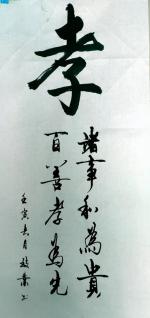 孝
諸事和為貴
百善孝為先
壬寅
月